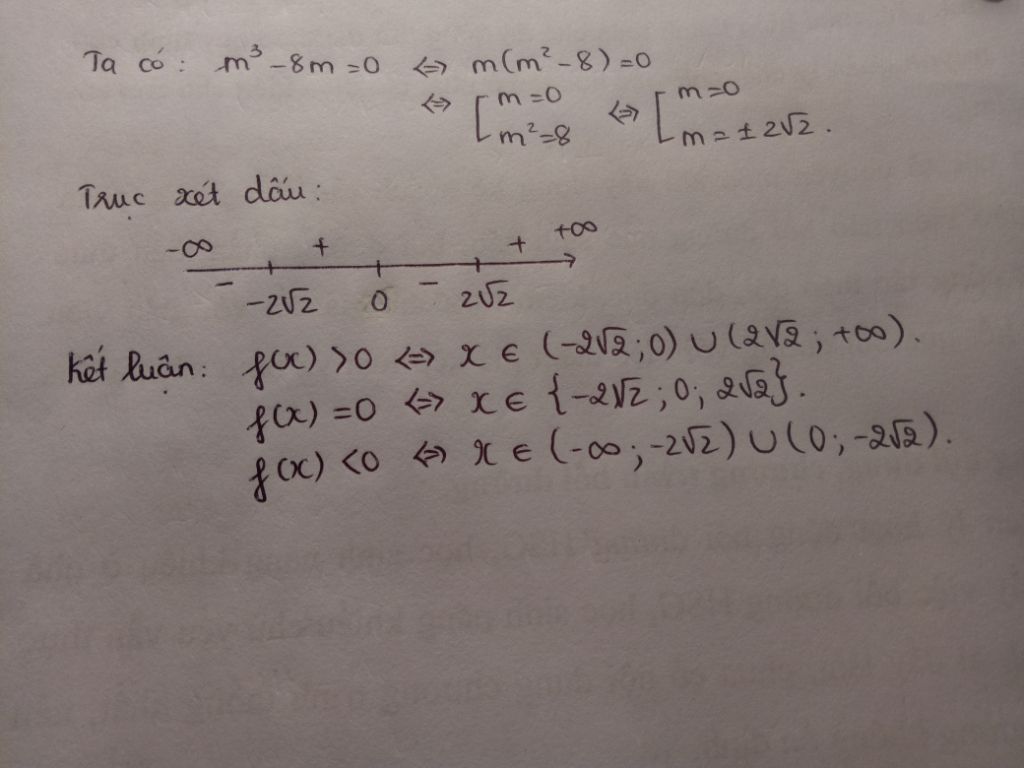 Ta có: m³ - 8m = 0 ⇔ m(m² - 8) = 0
⇔ [ m = 0 ⇔ [ m = 0
m² = 8 m = ± 2√2.
Trục xét dấu:
-∞ + + +∞
- -2√2 0 - 2√2
Kết luận: f(x) > 0 ⇔ x ∈ (-2√2; 0) ∪ (2√2; +∞).
f(x) = 0 ⇔ x ∈ {-2√2; 0; 2√2}.
f(x) < 0 ⇔ x ∈ (-∞; -2√2) ∪ (0; -2√2).